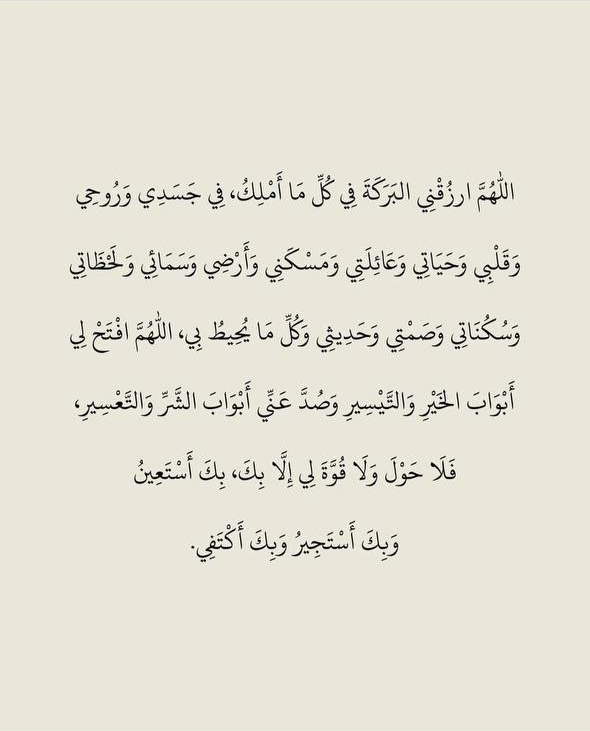 اللّٰهُمَّ ارزُقْنِي البَرَكَةَ فِي كُلِّ مَا أَمْلِكُ، فِي جَسَدِي وَرُوحِي
وَقَلْبِي وَحَيَاتِي وَعَائِلَتِي وَمَسْكَنِي وَأَرْضِي وَسَمَائِي وَلَحْظَاتِي
وَسُكُنَاتِي وَصَمْتِي وَحَدِيثِي وَكُلِّ مَا يُحِيطُ بِي، اللّٰهُمَّ افْتَحْ لِي
أَبْوَابَ الخَيْرِ وَالتَّيْسِيرِ وَصُدَّ عَنِّي أَبْوَابَ الشَّرِّ وَالتَّعْسِيرِ،
فَلَا حَوْلَ وَلَا قُوَّةَ لِي إِلَّا بِكَ، بِكَ أَسْتَعِينُ
وَبِكَ أَسْتَجِيرُ وَبِكَ أَكْتَفِي.